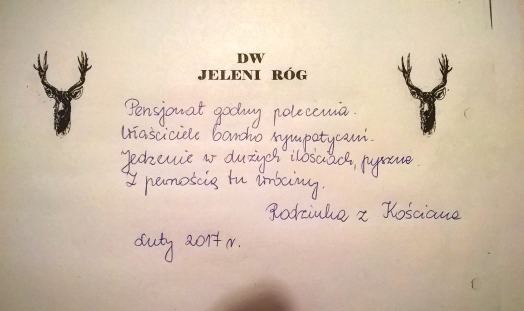 DW
JELENI RÓG
Pensjonat godny polecenia.
Właściciele bardzo sympatyczni.
Jedzenie w dużych ilościach, pyszne
Z pewnością tu wrócimy.
Rodzinka z Kościana
Luty 2017 r.